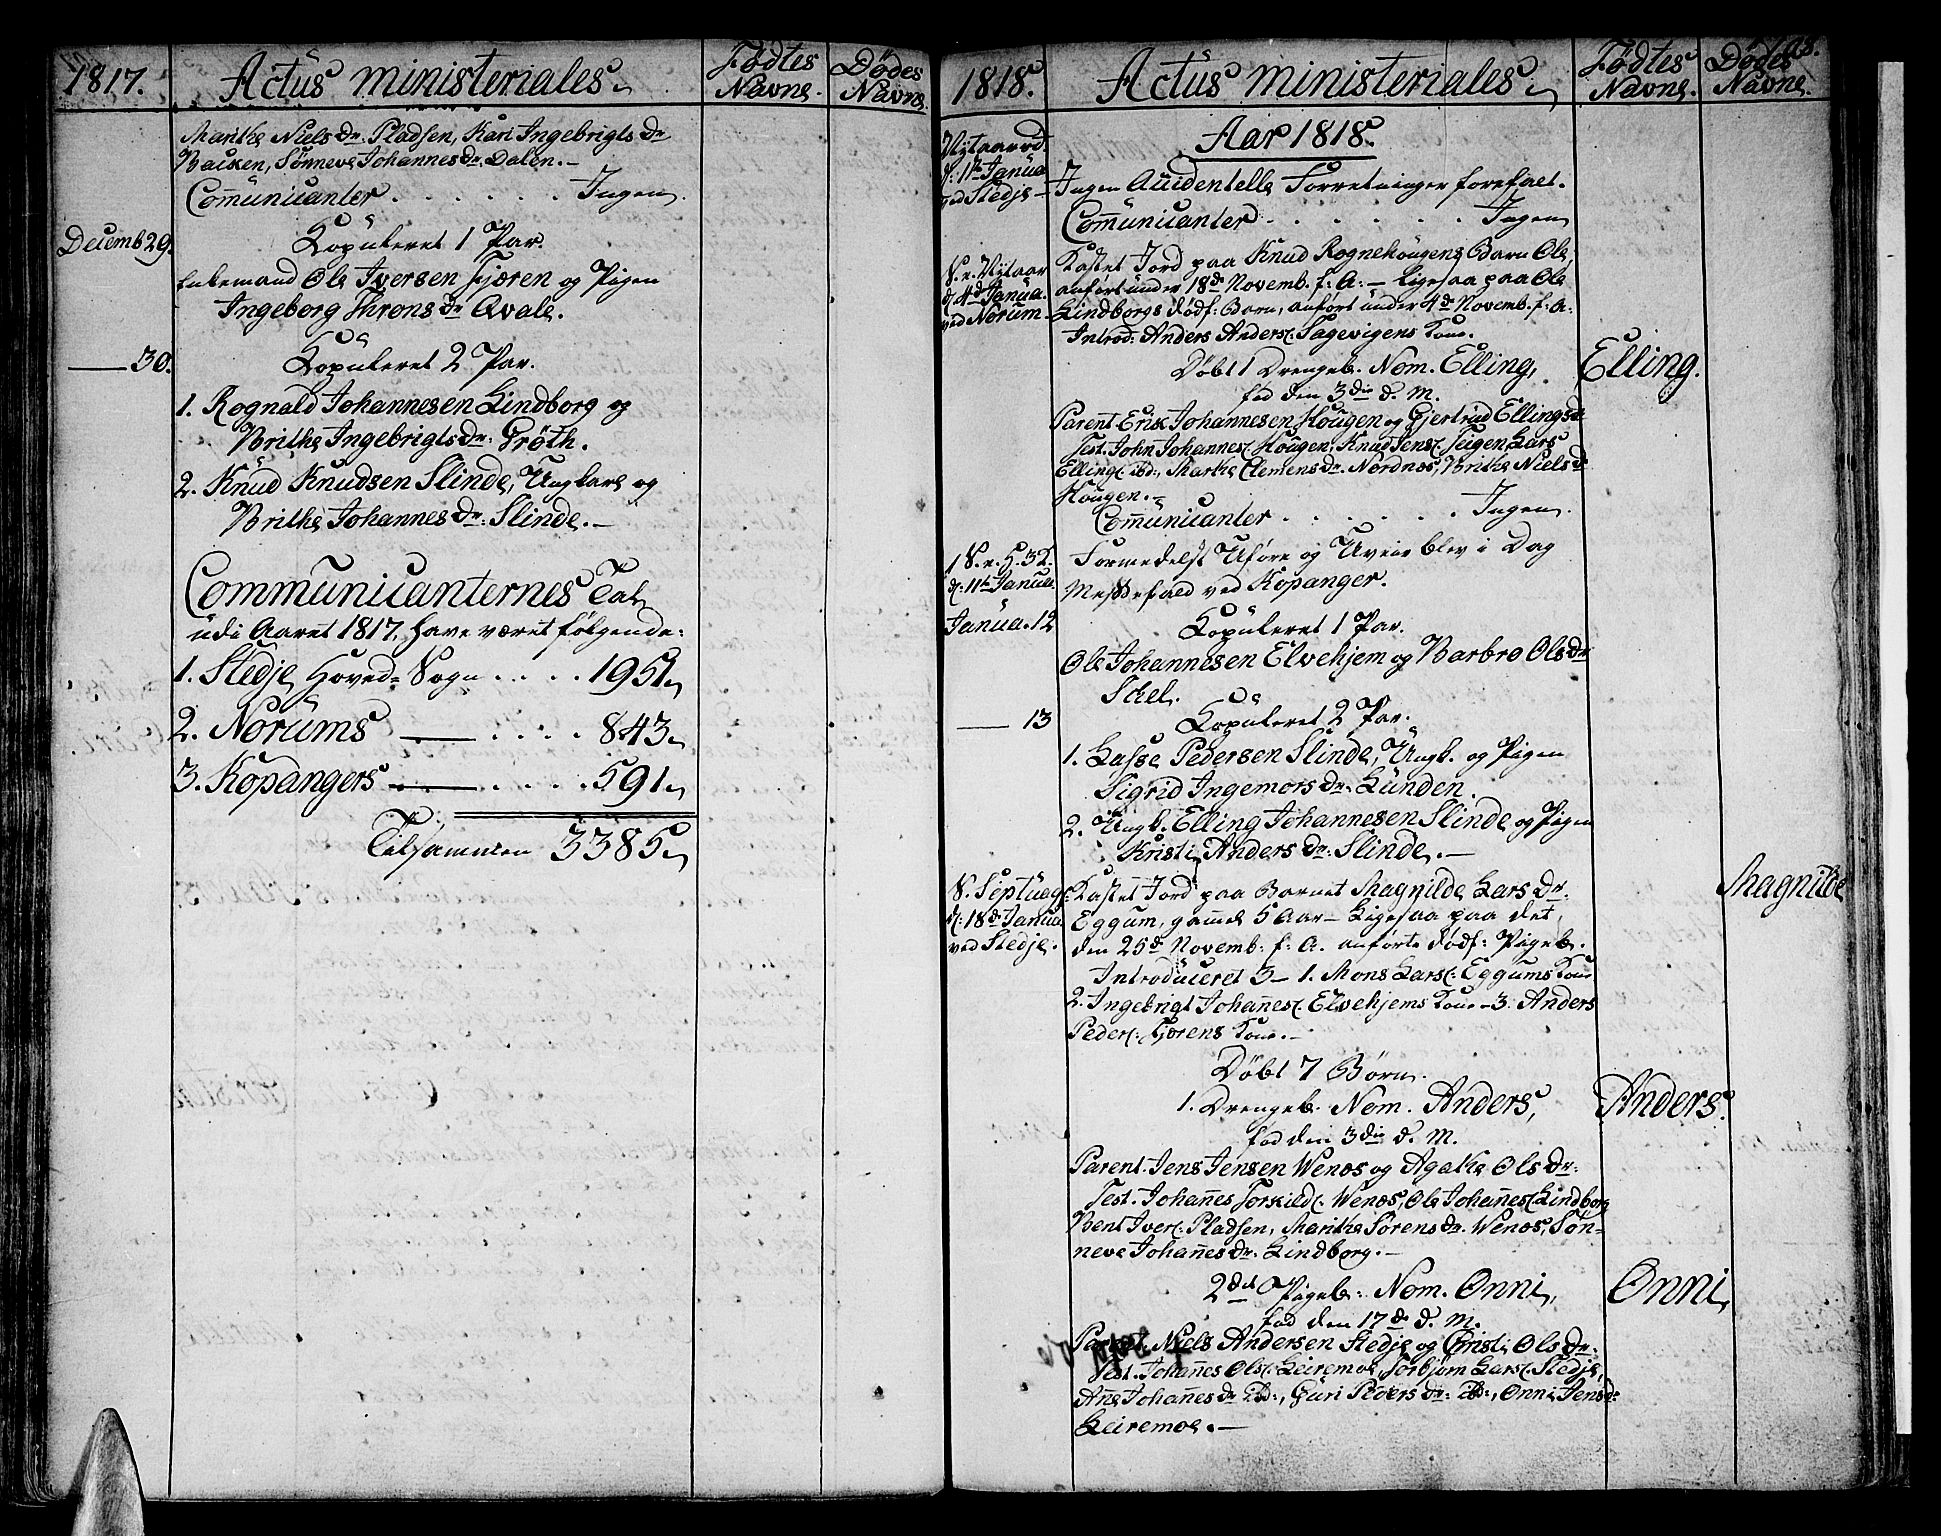 1817.
Actus ministeriales
Födtes Navne.
Dödes Navne.
Marithe Niels Dr. Pladsen, Kari Ingebrigts Dr
Backen, Sönneve Johannes Dr. Dalen.-
Com̄unicanter . . . . . . Ingen.
Decemb 29.
Copuleret 1 Par.
Enkemand Ole Iversen Fjæren og Pigen
Ingeborg Throns Dr Qvale.
— 30.
Copuleret 2 Par.
1. Rognald Johannesen Lindborg og
Brithe Ingebrigts Dr. Gröth.
2. Knud Knudsen Slinde, Ungkarl og
Brithe Johannes Dr: Slinde.-
Communicanternes Tal
udi Aaret 1817, have været følgende:
1. Stedje Hoved-Sogn . . . . 1951
2. Norums — . . . . 843
3. Kopangers — . . . . . 591
Tilsammen 3385
1818.
Actus ministeriales
Födtes Navne.
Dödes Navne.
Aar 1818.
Nytaarsd.
d: 1te Janua
ved Stedje-
Ingen Accidentelle Forretninger forefalt.
Com̄unicanter . . . . . . Ingen
S. e. Nytaar
d. 4de Janua.
ved Norum.
Kastet Jord paa Knud Rognehougens Barn Ole,
anfört under 18de Novemb. f: A: - Ligesaa paa Ole
Lindborgs dødf: Barn, anfört under 4de Novemb. f: A:
Introd: Anders Anders: Sagevigens Kone.
Döbt 1 Drengeb. Nom. Elling,
Elling.
fød den 3die d. M.
Parent. Erik Johannesen Hougen og Gjertrud Ellings dr
Test. John Johannes: Hougen, Knud Jens: Teigen, Lars
Elling: ibd:, Marthe Clemens dr. Nordnes, Brithe Niels dr
Hougen.-
Com̄unicanter . . . . . . Ingen.
1 S. e. H. 3 K.
d: 11te Janua.
Formedelst Uföre og Uveir blev i Dag
Messefald ved Kopanger.
Janua. 12
Copuleret 1 Par.
Ole Johannesen Elvehjem og Barbro Ols dr
Skel.
— 13
Copuleret 2 Par.
1. Lasse Pedersen Slinde, Ungk. og Pigen
Sigrid Ingemors Dr. Lunden.
2. Ungk. Elling Johannesen Slinde og Pigen
Kristi Anders Dr: Slinde.-
S. Septuag:
d: 18de Janua.
ved Stedje.
Kastet Jord paa Barnet Magnilde Lars Dr.
Magnilde
Eggum, gam̄el 5 Aar - Ligesaa paa det,
den 25de Novemb: f: A. anförte dødf: Pigeb.
Introduceret 3 - 1. Mons Lars: Eggums Kone
2. Ingebrigt Johan̄es: Elvehjems Kone - 3. Anders
Peder: Fjærens Kone.-
Döbt 7 Börn.
1. Drengeb. Nom. Anders,
Anders.
fød den 3die d. M.
Parent. Jens Jensen Wenæs og Agathe Ols Dr:
Test. Johan̄es Torkild: Wenæs, Ole Johan̄es: Lindborg
Bent Iver: Pladsen, Marithe Sörens Dr. Wenæs, Sön-
neve Johan̄es Dr. Lindborg.-
2det Pigeb: Nom. Onni,
Onni,
fød den 17de d. M.
Parent. Niels Andersen Stedje og Christi Ols Dr:
Test. Johan̄es Ols: Leiremoe, Torbjörn Lars: Stedje,
An̄e Johan̄es Dr ibd:, Guri Peders Dr: ibd:, Onni Jens dr
Leiremoe.-